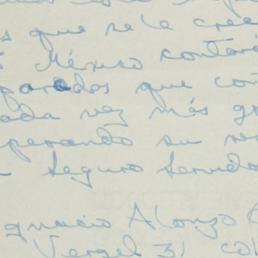 s que se le cree
México contará
parados que con
cada vez más gr
perando su re
Seguro Servido
gnacio Alonzo
Vergel 31 col